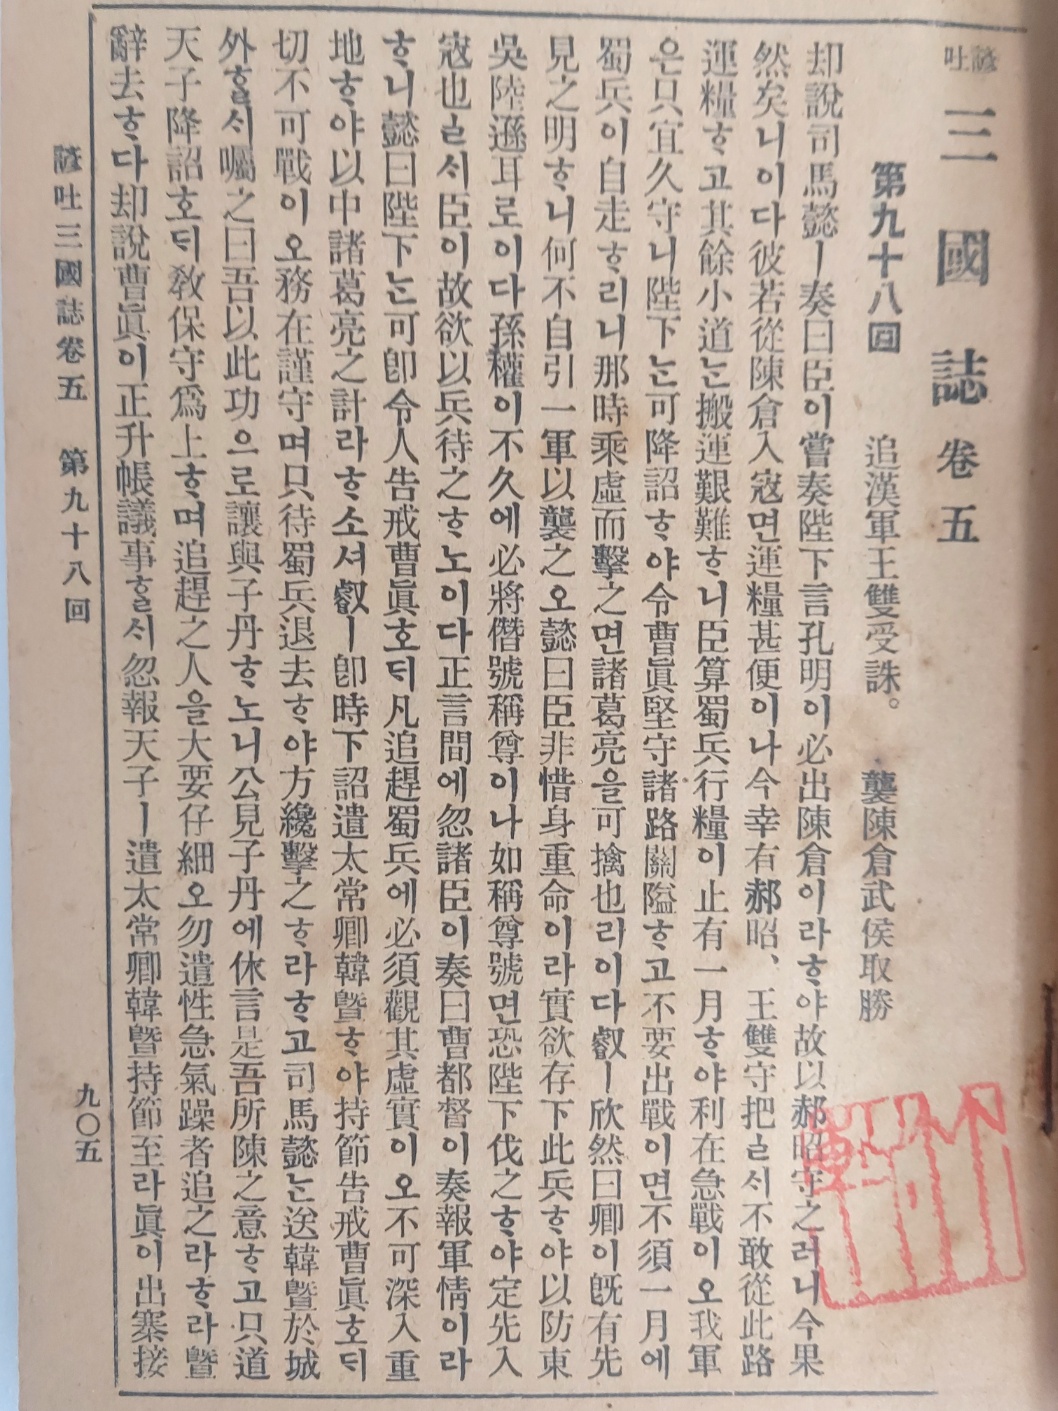 諺吐 三國誌 卷五
第九十八回 追漢軍王雙受誅。 襲陳倉武侯取勝
却說司馬懿ㅣ奏曰臣이嘗奏陛下言孔明이必出陳倉이라ᄒᆞ야故以郝昭守之러니今果
然矣니이다彼若從陳倉入寇면運糧甚便이나今幸有郝昭、王雙守把ㄹᄉᆡ不敢從此路
運糧ᄒᆞ고其餘小道ᄂᆞᆫ搬運艱難ᄒᆞ니臣算蜀兵行糧이止有一月ᄒᆞ야利在急戰이오我軍
은只宜久守니陛下ᄂᆞᆫ可降詔ᄒᆞ야令曹眞堅守諸路關隘ᄒᆞ고不要出戰이면不須一月에
蜀兵이自走ᄒᆞ리니那時乘虛而擊之면諸葛亮을可擒也라이다叡ㅣ欣然曰卿이旣有先
見之明ᄒᆞ니何不自引一軍以襲之오懿曰臣非惜身重命이라實欲存下此兵ᄒᆞ야以防東
吳陸遜耳로이다孫權이不久에必將僭號稱尊이나如稱尊號면恐陛下伐之ᄒᆞ야定先入
寇也ㄹᄉᆡ臣이故欲以兵待之ᄒᆞ노이다正言間에忽諸臣이奏曰曹都督이奏報軍情이라
ᄒᆞ니懿曰陛下ᄂᆞᆫ可卽令人告戒曹眞호ᄃᆡ凡追趕蜀兵에必須觀其虛實이오不可深入重
地ᄒᆞ야以中諸葛亮之計라ᄒᆞ소셔叡ㅣ卽時下詔遣太常卿韓曁ᄒᆞ야持節告戒曹眞호ᄃᆡ
切不可戰이오務在謹守며只待蜀兵退去ᄒᆞ야方纔擊之ᄒᆞ라ᄒᆞ고司馬懿ᄂᆞᆫ送韓曁於城
外ᄒᆞᆯᄉᆡ囑之曰吾以此功으로讓與子丹ᄒᆞ노니公見子丹에休言是吾所陳之意ᄒᆞ고只道
天子降詔호ᄃᆡ敎保守爲上ᄒᆞ며追趕之人을大要仔細오勿遣性急氣躁者追之라ᄒᆞ라曁
辭去ᄒᆞ다却說曹眞이正升帳議事ᄒᆞᆯᄉᆡ忽報天子ㅣ遣太常卿韓曁持節至라眞이出寨接
諺吐三國誌卷五 第九十八回 九〇五